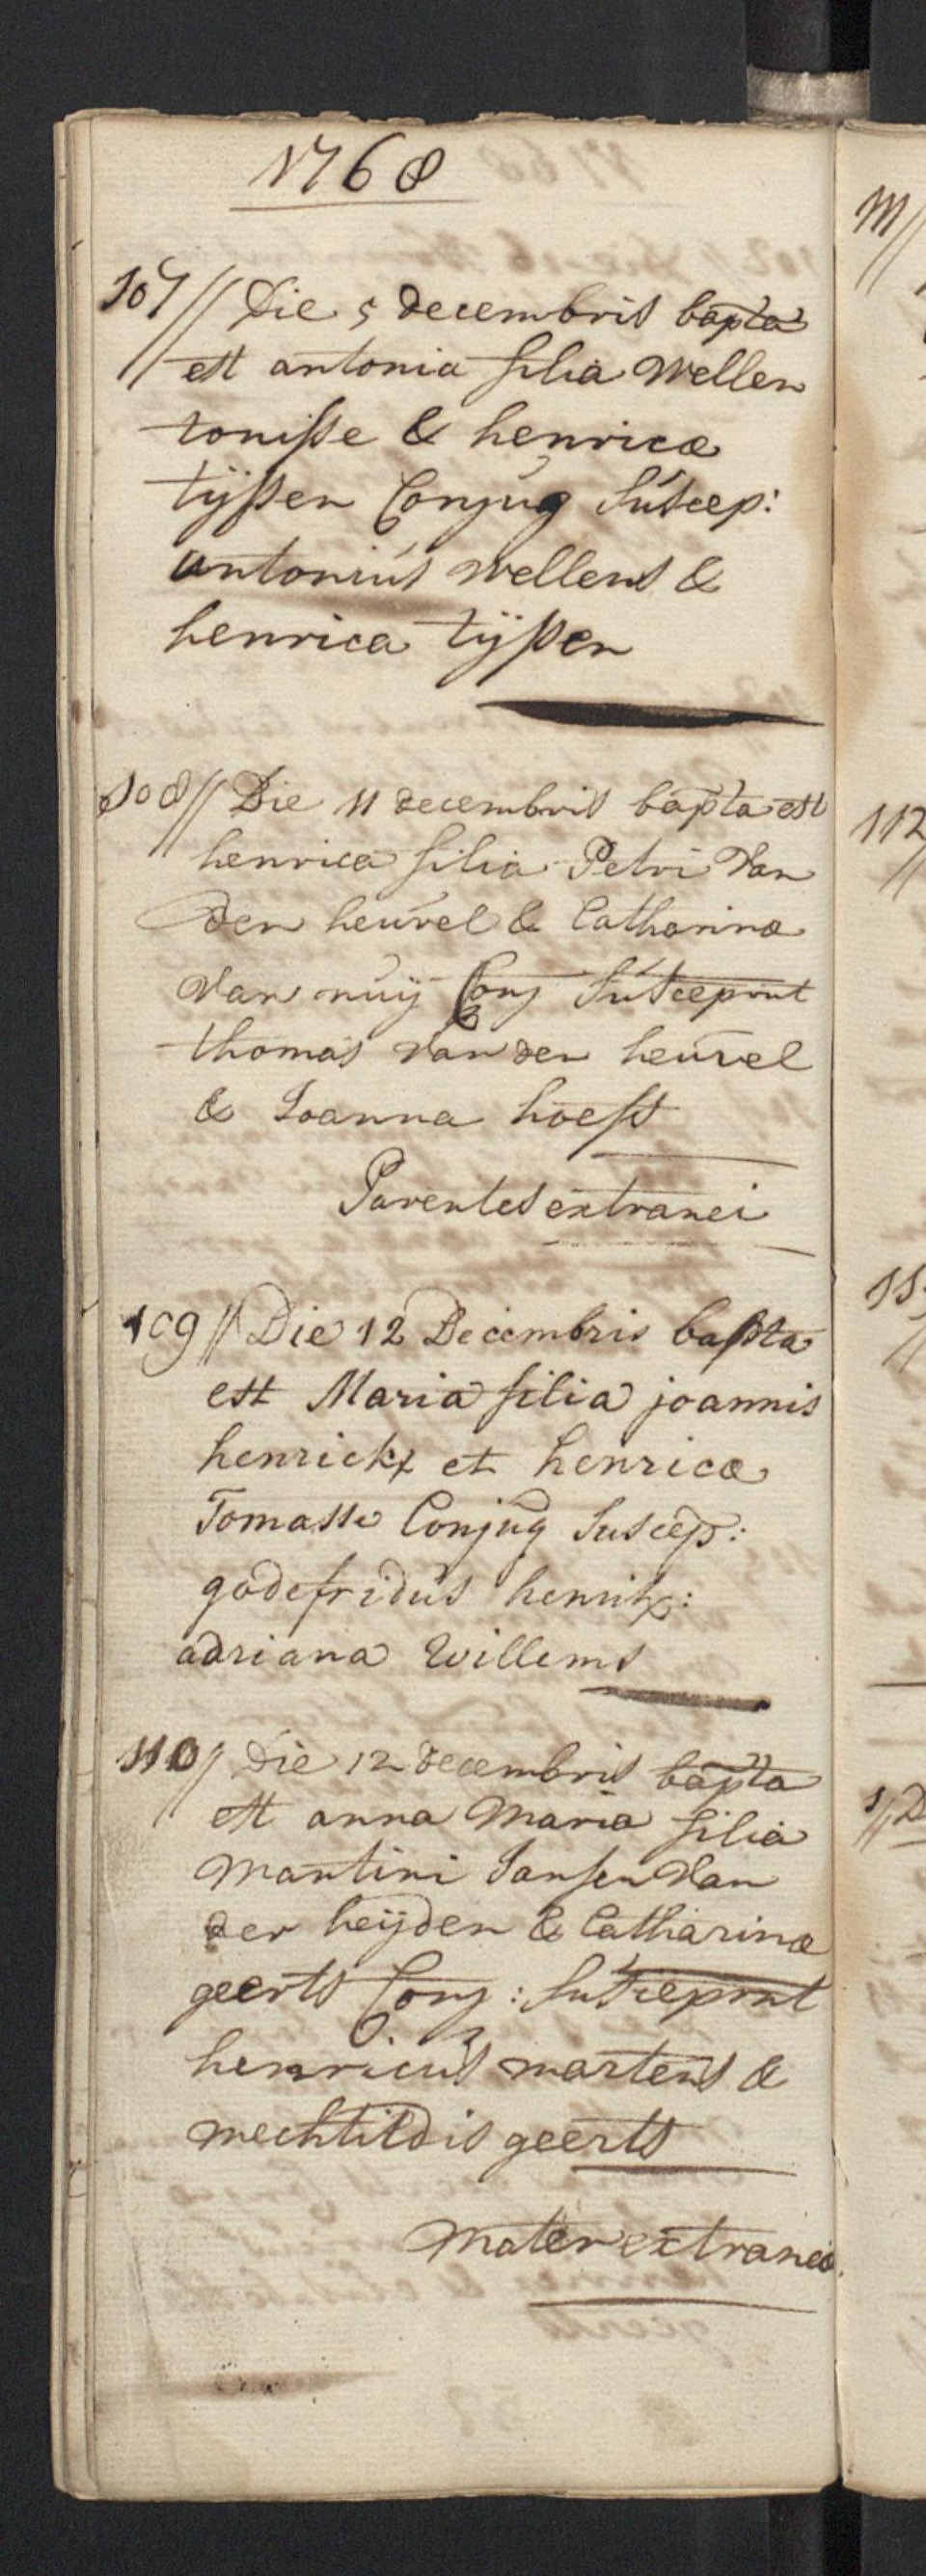 1768
107// Die 5 decembris bapta
est antonia filia Wellen
tonisse & henricæ
tijssen Conjug Suscep:
antonius wellens &
henrica tijssen
108// Die 11 decembris bapta est
henrica filia Petri Van
den heuvel & Catharinæ
Van nuij Conj Suscepnt
thomas van den heuvel
& Joanna hoefs
Parentes extranei
109// Die 12 Decembris bapta
est Maria filia joannis
henrickx et henricæ
Tomasse Conjug Suscep:
godefridus henrikx:
adriana Willems
110// Die 12 decembris bapta
est anna Maria filia
Martini Jansen Van
der heijden & Catharinæ
geerts Conj: Suscepnt
henricus martens &
mechtildis geerts
Mater extranea.
111//
112//